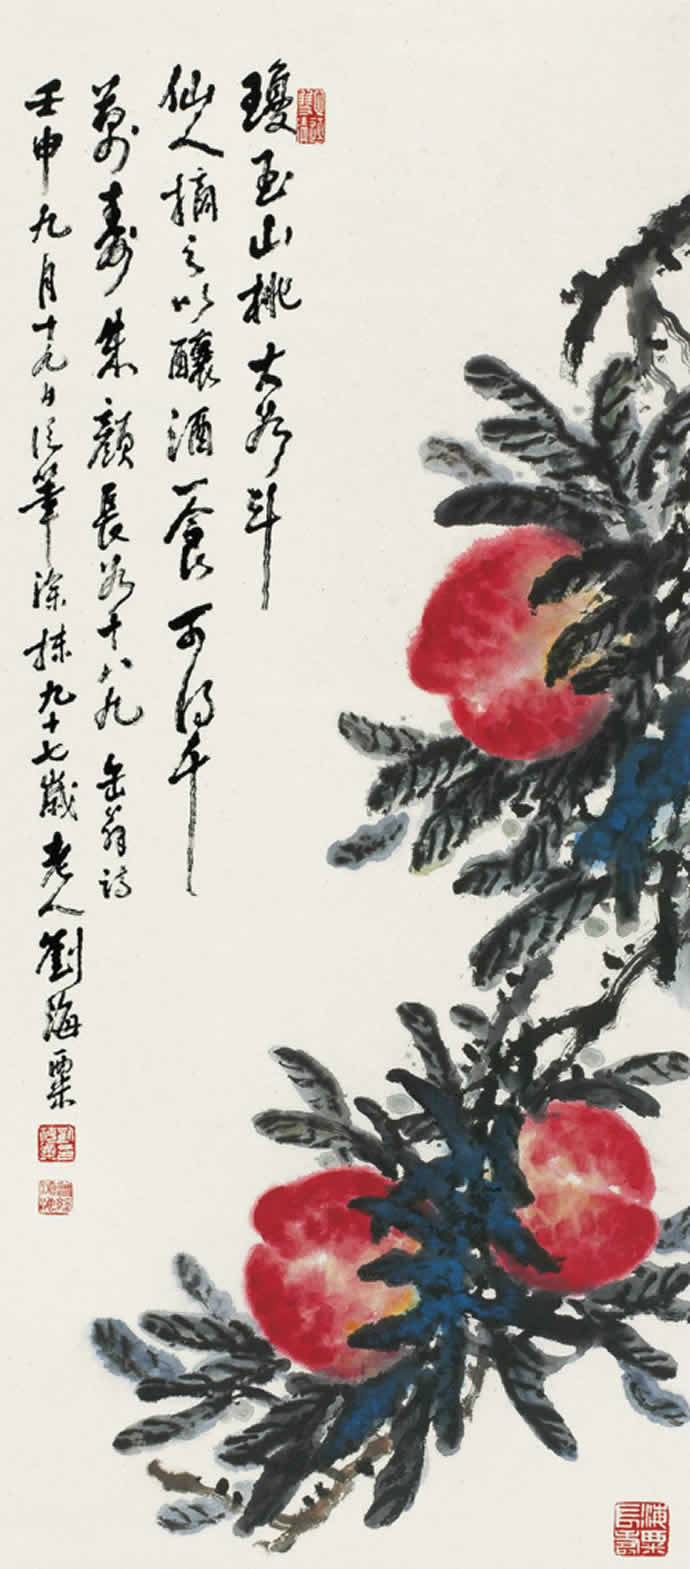 琼玉山桃大如斗
仙人摘之以酿酒一食可得千
萬寿朱颜長如十八九 缶翁詩
壬申九月十九日信筆塗抹九十七歲老人劉海粟
海粟
長壽